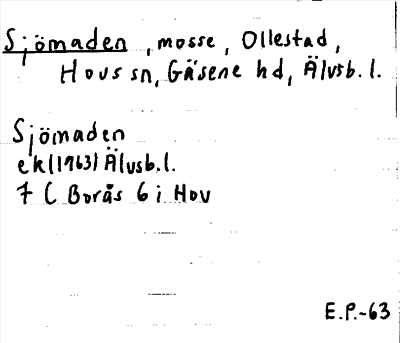 Sjömaden, mosse, Ollestad,
Hovs sn, Gäsene hd, Älvsb. l.
Sjömaden
ek (1963) Älvsb. l.
7 C Borås 6 i Hov
E.P.-63